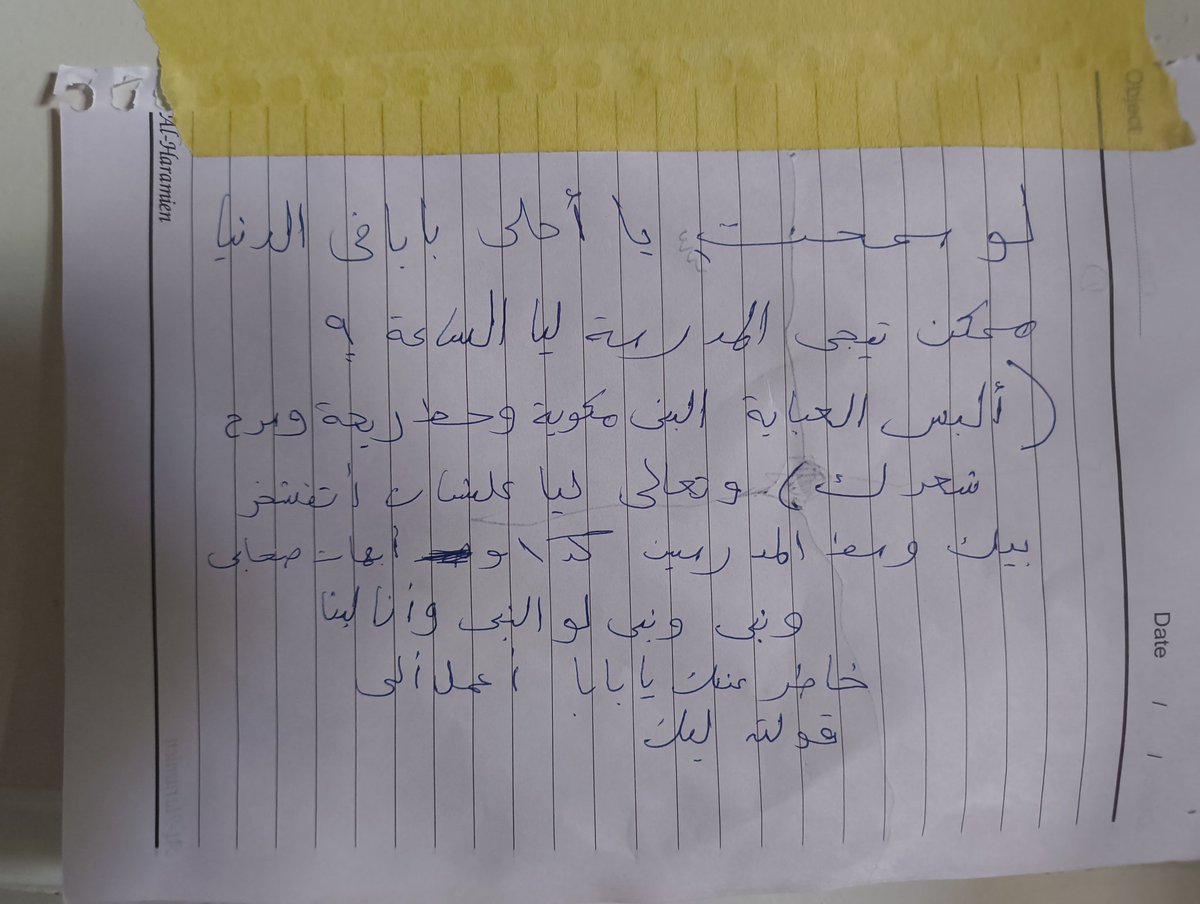 لو سمحت يا أحلى بابا فى الدنيا
ممكن تيجى المدرسة ليا الساعة ٩
(ألبس العباية البنى مكوية وحط ريحة وسرح
شعرك) وتعالى ليا علشان أتفشخر
بيك وسط المدرسين كدا و أبهات صحابى
ونبى ونبى لو النبى وأنا لينا
خاطر عندك يا بابا أعمل ألى
قولته ليك
Al-Haramien
Object
Date / /